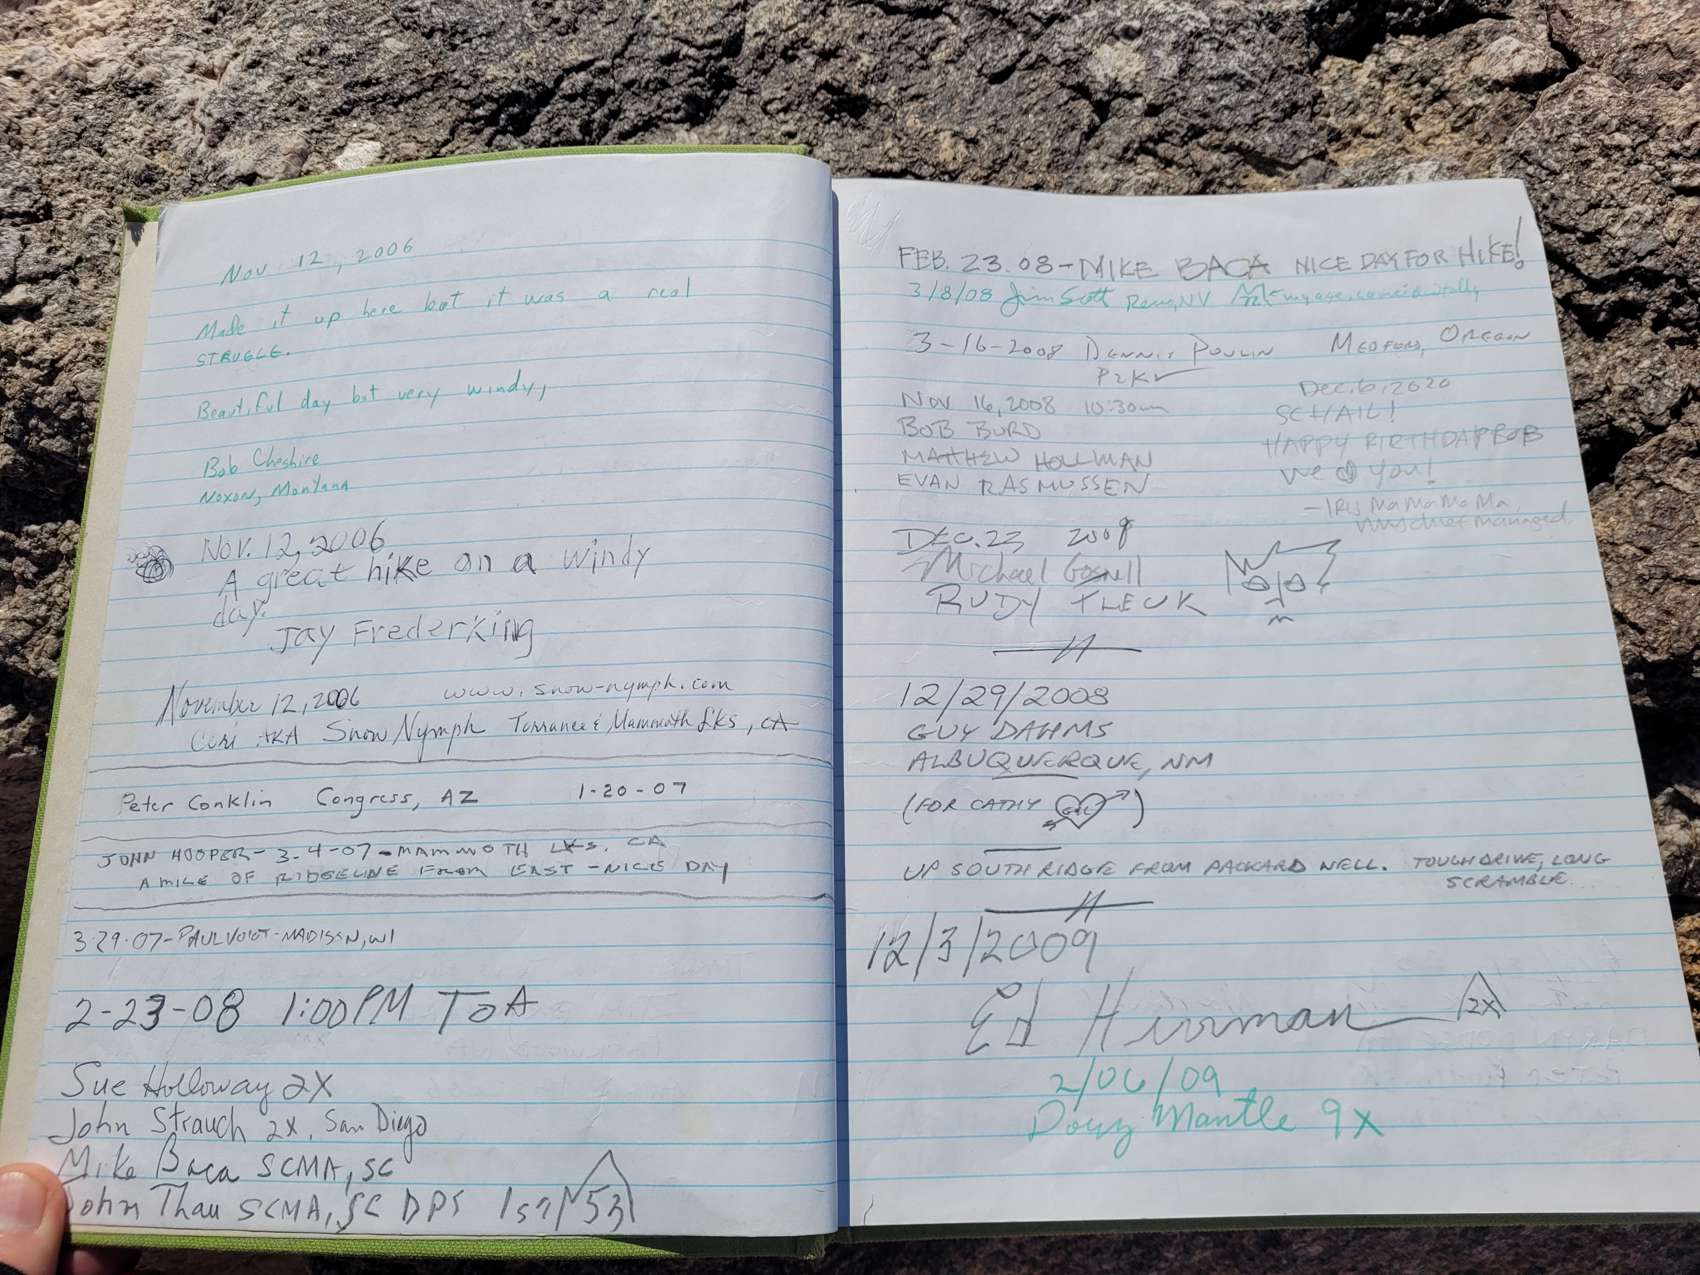 Nov 12, 2006
Made it up here but it was a real
STRUGLE.
Beautiful day but very windy,
Bob Cheshire
Noxon, Montana
Nov. 12, 2006
A great hike on a windy
day.
Jay Frederking
November 12, 2006 www.snow-nymph.com
Cori AKA Snow Nymph Torrance & Mammoth Lks, CA
Peter Conklin Congress, AZ 1-20-07
JOHN HOOPER - 3-4-07 - MAMMOTH LKS. CA
A MILE OF RIDGELINE FROM EAST - NICE DAY
3-29-07 - PAUL VOIGT - MADISON, WI
2-23-08 1:00 PM TOA
Sue Holloway 2X
John Strauch 2X, San Diego
Mike Baca SCMA, SC
John Thau SCMA, SC DPS 53
FEB. 23. 08 - MIKE BACA NICE DAY FOR HIKE!
3/8/08 Jim Scott Reno, NV my age, coincidentally
3-16-2008 DENNIS POULIN MEDFORD, OREGON
P2K ✓
Nov 16, 2008 10:30am
BOB BURD
MATTHEW HOLLMAN
EVAN RASMUSSEN
Dec. 6, 2020
SCHAIL!
HAPPY BIRTHDAY BOB
We you!
- IRIS MaMaMaMa
Mischief Managed
DEC. 23 2008
Michael Gosnell
RUDY FLECK
12/29/2008
GUY DAHMS
ALBUQUERQUE, NM
(FOR CATHY G+C)
UP SOUTH RIDGE FROM PACKARD WELL. TOUGH DRIVE, LONG
SCRAMBLE.
12/3/2009
Ed Herrman 2X
2/06/09
Doug Mantle 9X